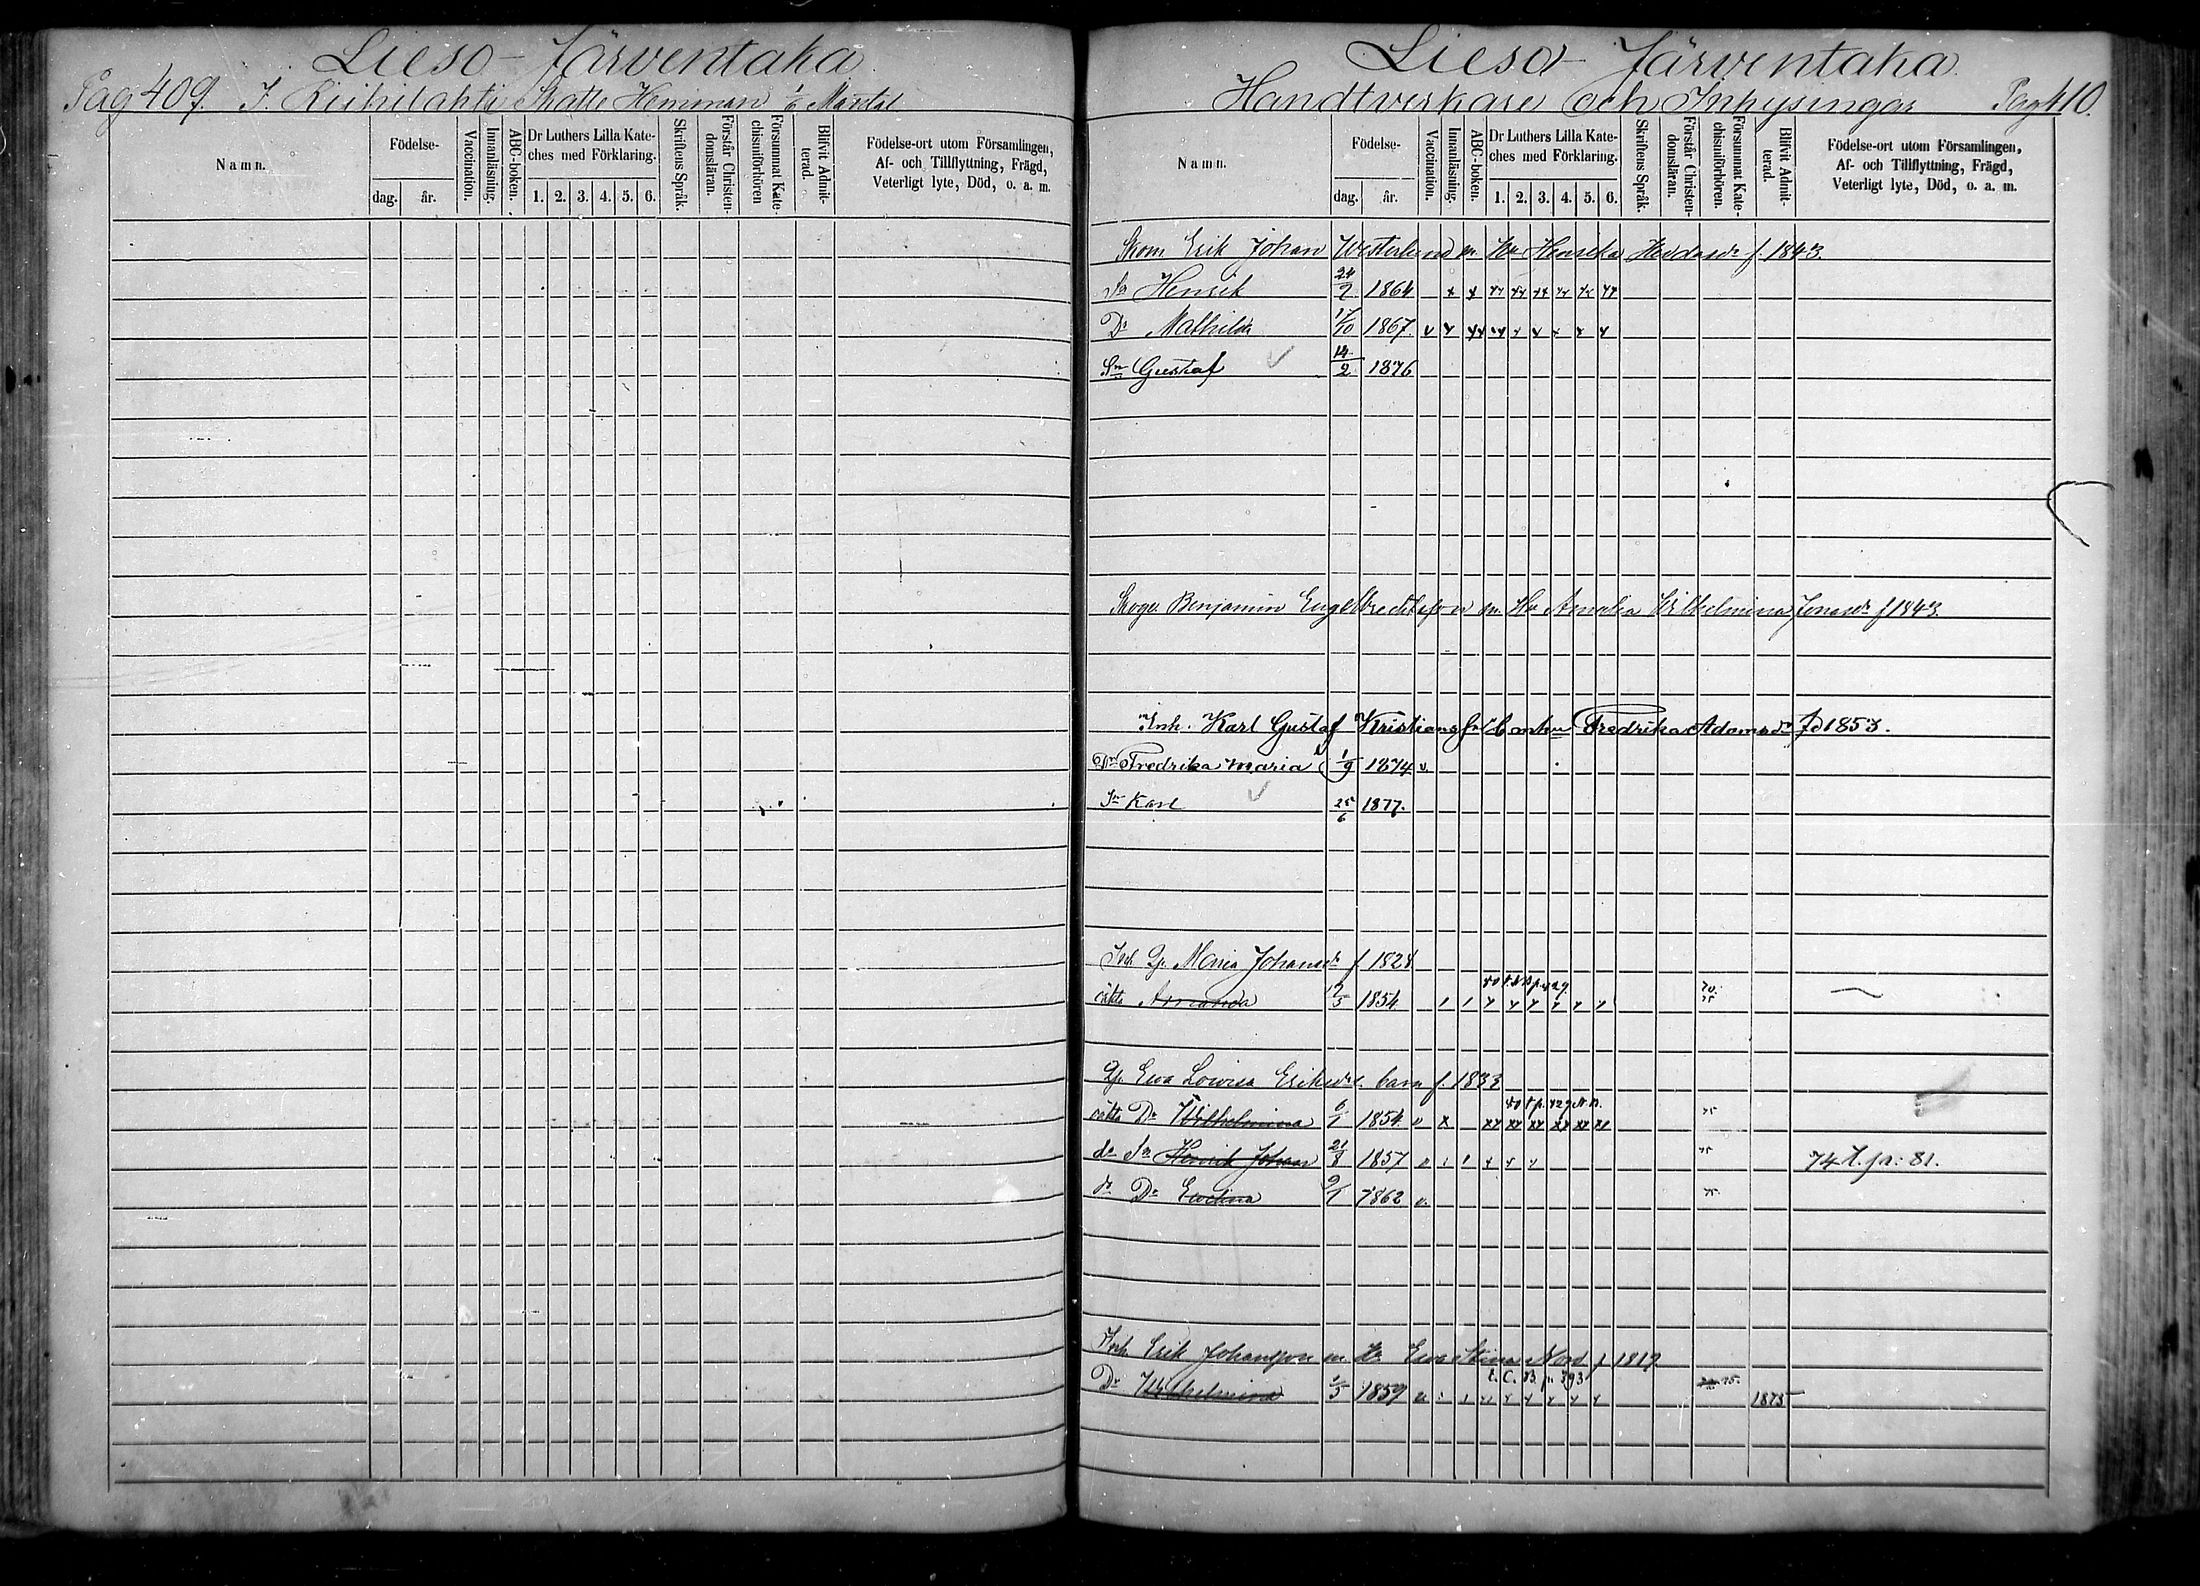 Lieso-Järventaka
Pag 409. I. Riihilahti Skatte Hemman 1/6 Mantal
Namn.
Födelse-
dag. år.
Vaccination.
Innanläsning.
ABC-boken.
Dr Luthers Lilla Kate-
ches med Förklaring.
1. 2. 3. 4. 5. 6.
Skriftens Språk.
Förstår Christen-
domsläran.
Försummat Kate-
chismiförhören
Blifvit Admit-
terad.
Födelse-ort utom Församlingen,
Af- och Tillflyttning, Frägd,
Veterligt lyte, Död, o. a. m.
Lieso-Järventaka.
Handtverkare och Inhysingar Pag 410.
Namn.
Födelse-
dag. år.
Vaccination.
Innanläsning.
ABC-boken.
Dr Luthers Lilla Kate-
ches med Förklaring.
1. 2. 3. 4. 5. 6.
Skriftens Språk.
Förstår Christen-
domsläran.
Försummat Kate-
chismiförhören.
Blifvit Admit-
terad.
Födelse-ort utom Församlingen,
Af- och Tillflyttning, Frägd,
Veterligt lyte, Död, o. a. m.
Skom Erik Johan Westerlund m. Hu Henrika Heddasdr f. 1843.
Sn Henrik 24/7 1864 x x xx xx xx xx xx xx
Dr Mathilda 17/10 1867. v x xx xx x x x x x
Sn Gustaf 14/2 1876
Benjamin Engelbrechtsson m. Hu Amalia Wilhelmina Jonasdr f 1843.
Inh. Karl Gustaf Kristiansson Fredrika Adamsdr fd 1853.
Dr Fredrika Maria 1/9 1874 v.
Sn Karl 25/6 1877.
Inh Maria Johansdr f 1828
oäkta Amanda 1854.
Ewa Lowisa Eriksdr. barn f. 1833
oäkta Dr Wilhelmina 6/1 1854 v x xx xx xx xx xx xx
do Sn Henrik Johan 21/8 1857 74 t. pa: 81.
do Dr Evelina 9/1 1862 v.
Inh Erik Johansson m Hu Ewa Stina Nord f 1819
t. C. B. p. 393
Dr Wilhelmina 1/5 1859 75. 1875